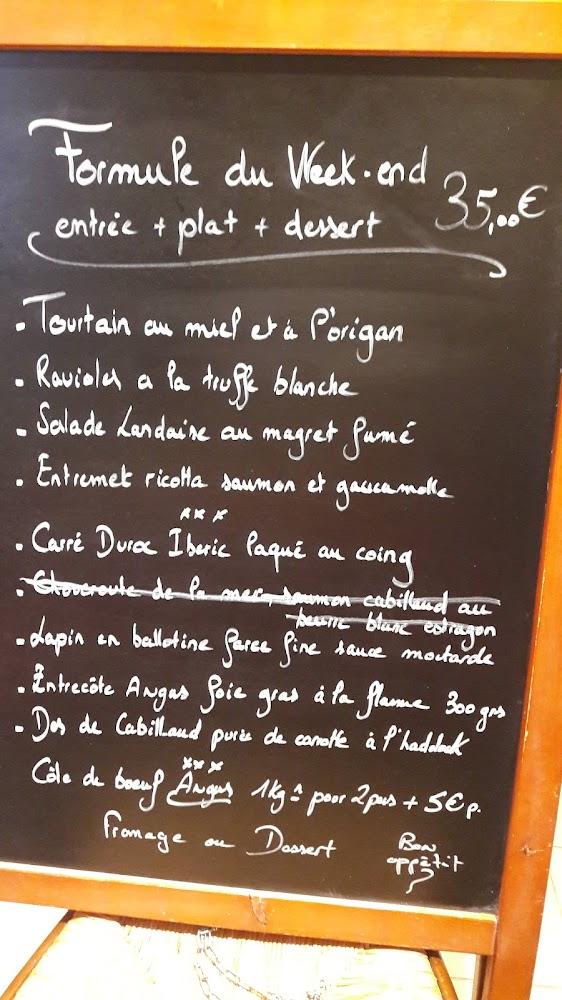 Formule du Week-end
35,00€
entrée + plat + dessert
• Tourtain au miel et à l'origan
• Ravioles a la truffe blanche
• Salade Landaise au magret fumé
• Entremet ricotta saumon et guacamolle
xxx
• Carré Duroc Iberic laqué au coing
• Choucroute de la mer, saumon cabillaud au
beurre blanc estragon
• Lapin en ballotine farce fine sauce moutarde
• Entrecôte Angus foie gras à la flamme 300 grs
• Dos de Cabillaud purée de carotte à l'haddock
xxx
Côte de boeuf Angus 1kg² pour 2 pers + 5€ p.
Fromage ou Dessert
Bon
appétit